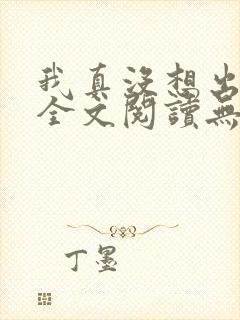 我真沒想出
全文閱讀無
丁墨